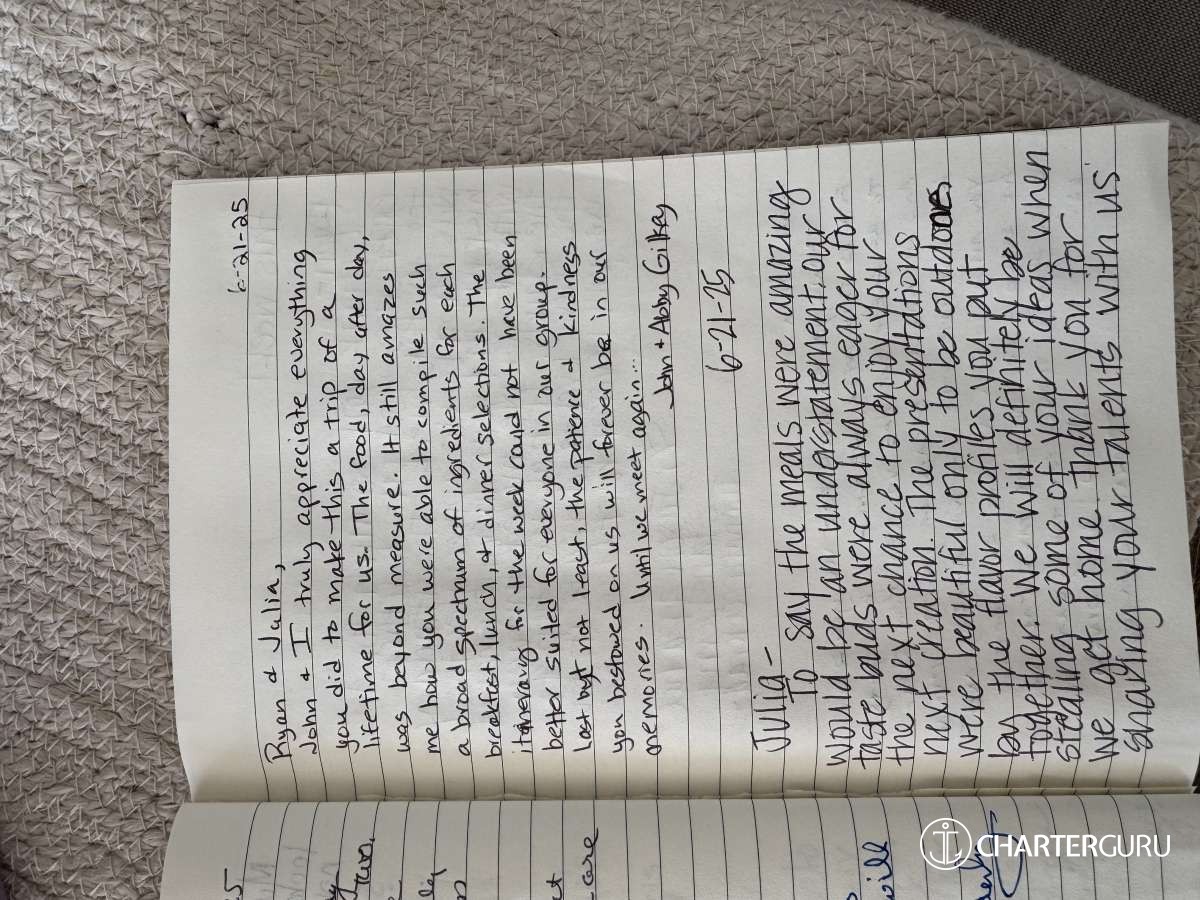 6-21-25
Ryan & Julia,
John & I truly appreciate everything
you did to make this a trip of a
lifetime for us. The food, day after day,
was beyond measure. It still amazes
me how you were able to compile such
a broad spectrum of ingredients for each
breakfast, lunch, & dinner selections. The
itinerary for the week could not have been
better suited for everyone in our group.
Last but not least, the patience & kindness
you bestowed on us will forever be in our
memories. Until we meet again...
John & Abby Gilkay
6-21-25
Julia -
To say the meals were amazing
would be an understatement. Our
taste buds were always eager for
the next chance to enjoy your
next creation. The presentations
were beautiful only to be outdone
by the flavor profiles you put
together. We will definitely be
stealing some of your ideas when
we get home. Thank you for
sharing your talents with us
run.
care
will
CHARTERGURU